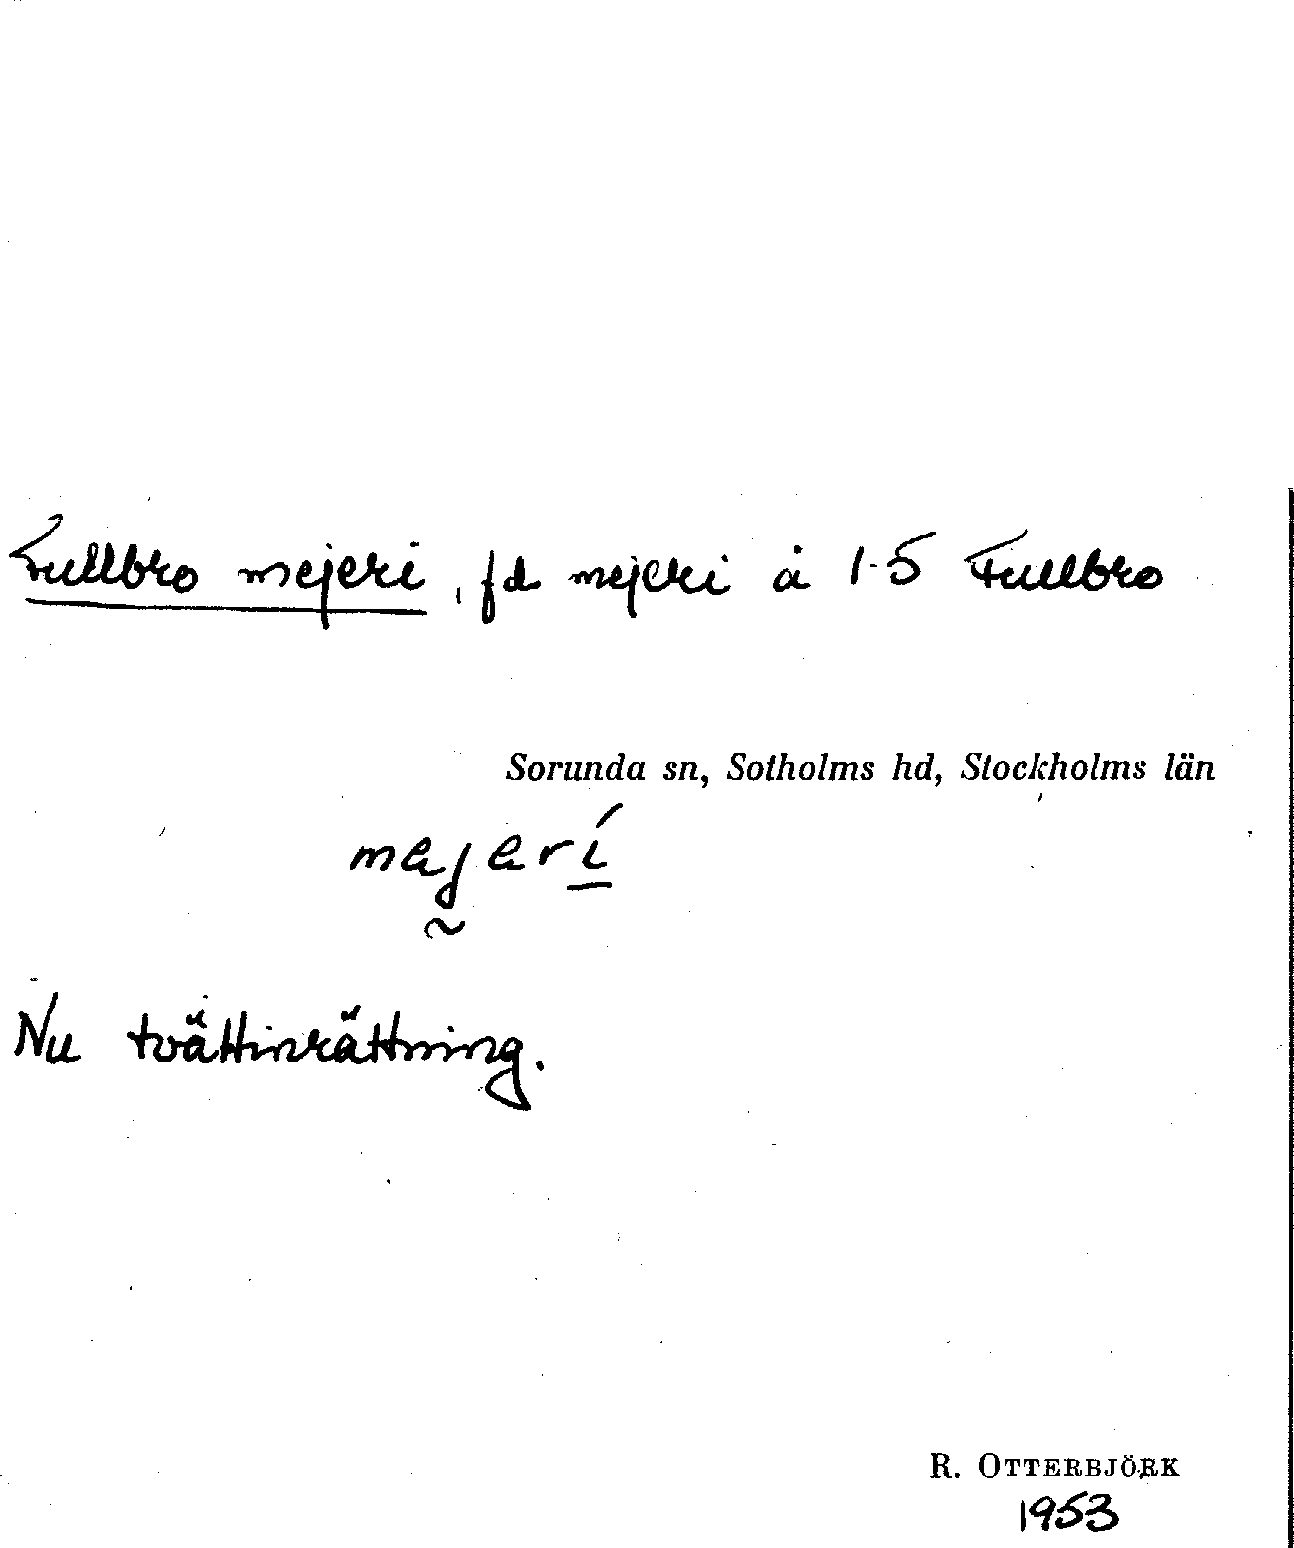 Fullbro mejeri, fd mejeri å 1-5 Fullbro
Sorunda sn, Sotholms hd, Stockholms län
mejerí
Nu tvättinrättning.
R. OTTERBJÖRK
1953